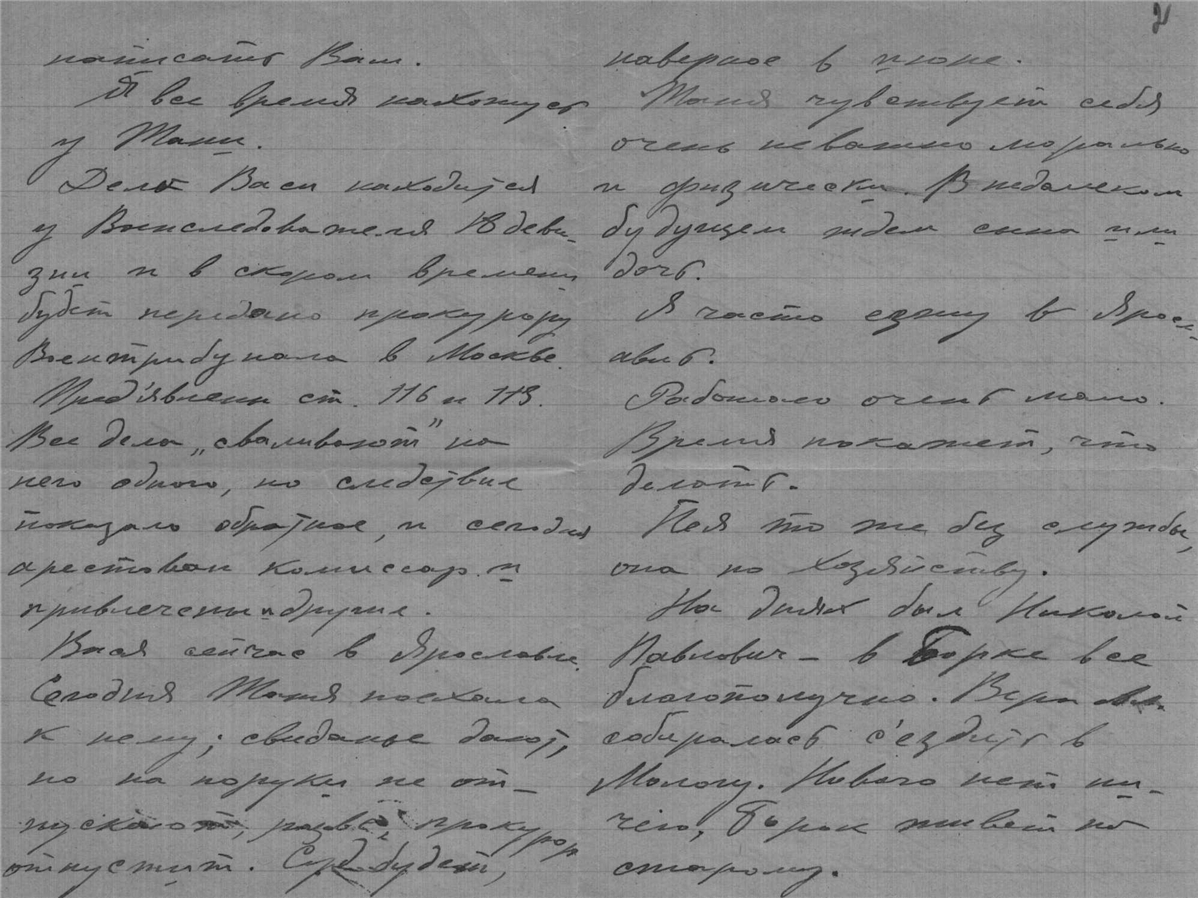 написать Вам.
Я все время нахожусь
у Тани.
Дело Васи находится
у Военследователя 18 деви-
зии и в скором времени
будет передано прокурору
Воентрибунала в Москве.
Пред'явлены ст. 116 и 113.
Все дела „сваливают" на
него одного, но следствие
показало обратное, и сегодня
арестован комиссар и
привлечены и другие.
Вася сейчас в Ярославле.
Сегодня Таня поехала
к нему; свиданье дают,
но на поруки не от-
пускают, разве прокурор
отпустит. Суд будет,
2
наверное в июне.
Таня чувствует себя
очень неважно морально
и физически. В недалеком
будущем ждем сына или
дочь.
Я часто езжу в Яросл-
авль.
Работаю очень мало.
Время покажет, что
делать.
Лёля то же без службы,
она по хозяйству.
На днях был Николай
Павлович – в Борке все
благополучно. Вера
собиралась с'ездить в
Мологу. Нового нет ни-
чего, Борок живет по
старому.